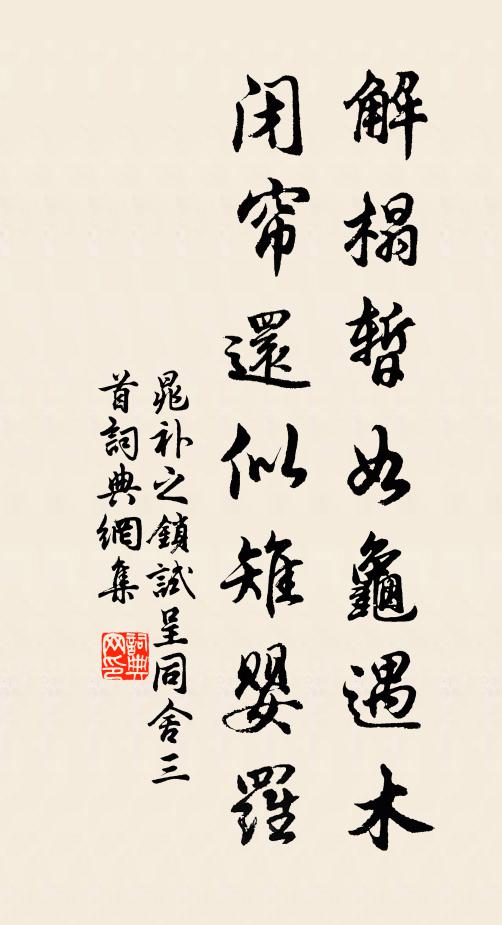 解榻暫如龜遇木
闭帘還似雉嬰羅
晁补之鎖試呈同舍三
首詞典網集
詞典网印